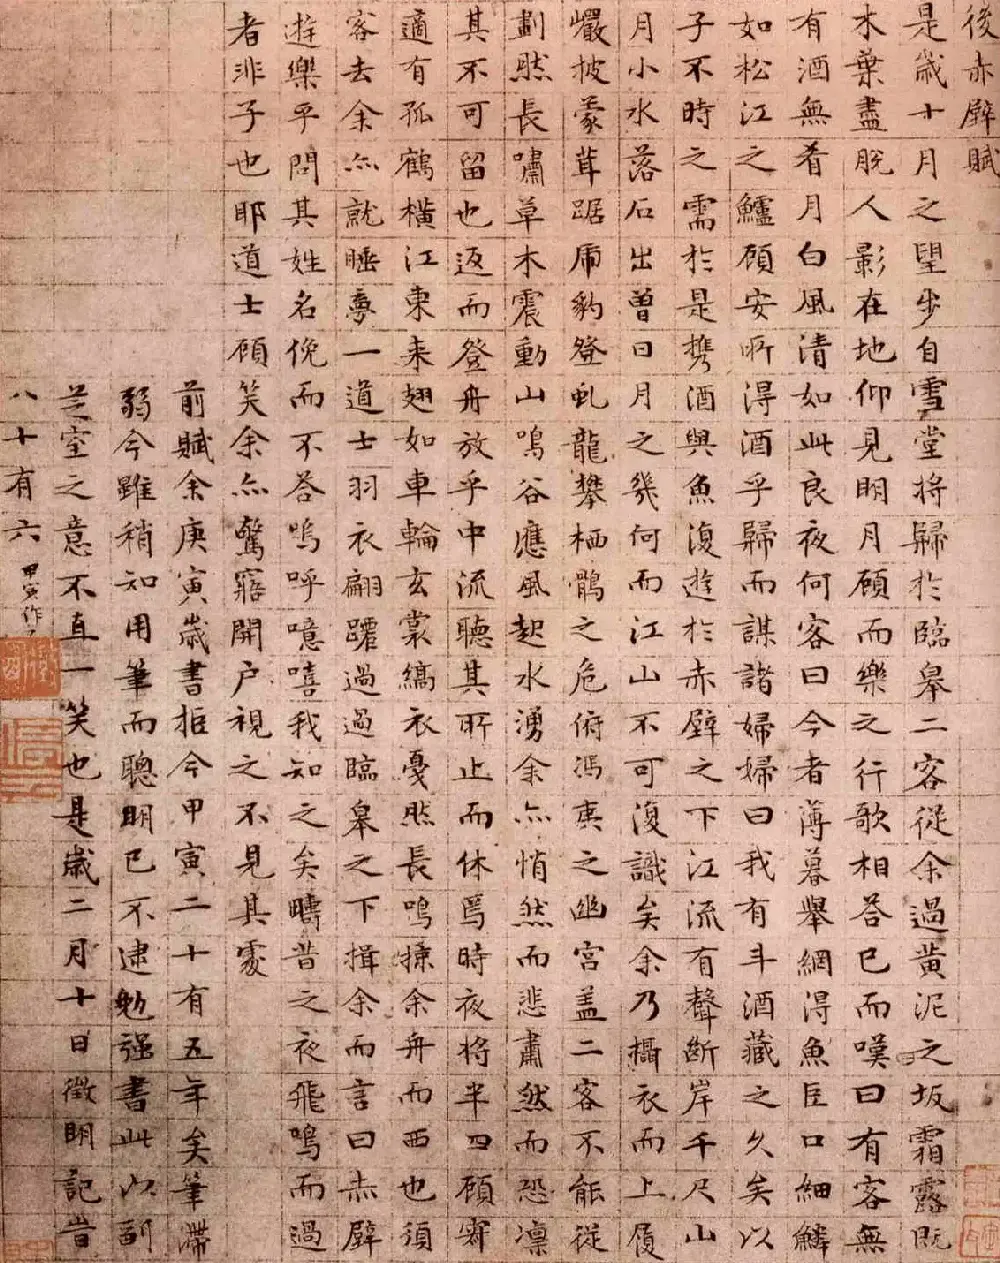 後赤壁賦
是歲十月之望步自雪堂將歸於臨皋二客從余過黄泥之坂霜露既
木葉盡脫人影在地仰見明月顧而樂之行歌相答已而嘆曰有客無
有酒無肴月白風清如此良夜何客曰今者薄暮舉網得魚巨口細鱗
如松江之鱸顧安所得酒乎歸而謀諸婦婦曰我有斗酒藏之久矣以
子不時之需於是攜酒與魚復遊於赤壁之下江流有聲斷岸千尺山
月小水落石出曾日月之幾何而江山不可復識矣余乃攝衣而上履
巖披蒙茸踞虎豹登虬龍攀栖鶻之危俯馮夷之幽宮盖二客不能從
劃然長嘯草木震動山鳴谷應風起水湧余亦悄然而悲肅然而恐凛
其不可留也返而登舟放乎中流聽其所止而休焉時夜將半四顧寂
適有孤鶴橫江東来翅如車輪玄裳縞衣戛然長鳴掠余舟而西也須
客去余亦就睡夢一道士羽衣翩躚過臨皋之下揖余而言曰赤壁
遊樂乎問其姓名俛而不答嗚呼噫嘻我知之矣疇昔之夜飛鳴而過
者非子也耶道士顧笑余亦驚寤開户視之不見其處
前賦余庚寅歲書拒今甲寅二十有五年矣筆滯
弱今雖稍知用筆而聰明已不逮勉强書此以副
芝室之意不直一笑也是歲二月十日徵明記昔
八十有六 甲寅作